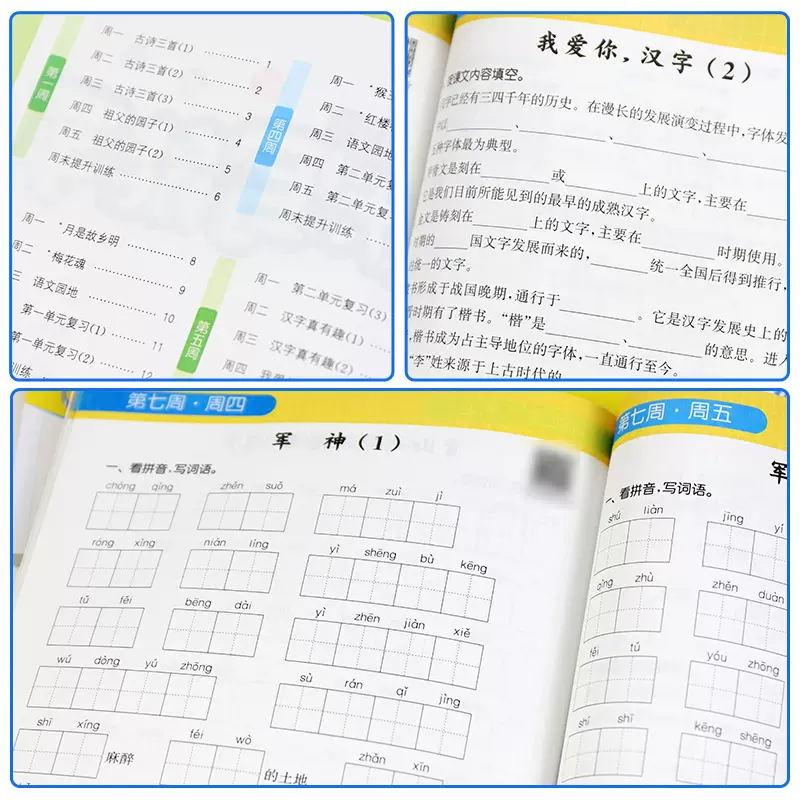 第一周
周一 古诗三首(1) 1
周二 古诗三首(2) 2
周三 古诗三首(3) 3
周四 祖父的园子(1) 4
周五 祖父的园子(2) 5
周末提升训练 6
周一 *月是故乡明 8
周二 *梅花魂 9
三 语文园地 10
第一单元复习(1) 11
第一单元复习(2) 12
训练
第四周
周一 *猴
周二 *红楼
周三 语文园地
周四 第二单元复
周五 第二单元复
周末提升训练
第五周
周一 第二单元复习(3)
周二 汉字真有趣(1)
周三 汉字真有趣(2)
周四
我爱你，汉字(2)
课文内容填空。
字已经有三四千年的历史。在漫长的发展演变过程中，字体发
、 、 、
种字体最为典型。
骨文是刻在 或 上的文字，主要在
它是我们目前所能见到的最早的成熟汉字。
金文是铸刻在 上的文字，主要在 时期使用。
时期的 国文字发展而来的， 统一全国后得到推行，
统一的文字。
书形成于战国晚期，通行于 。它是汉字发展史上的
时期有了楷书。“楷”是 、 、 的意思。进入
楷书成为占主导地位的字体，一直通行至今。
“李”姓来源于上古时代的
第七周·周四
军 神(1)
一、看拼音，写词语。
chóng qìng zhěn suǒ má zuì jì
róng xìng nián líng yì shēng bù kēng
tǔ fěi bēng dài yì zhēn jiàn xiě
wú dòng yú zhōng sù rán qǐ jìng
shī xíng 麻醉 féi wò 的土地 zhǎn xīn
第七周·周五
军
一、看拼音，写词语。
shú liàn jìng yì
qìng zhù zhěn duàn
fěi tú yóu zhōng
shī shī kēng shēng